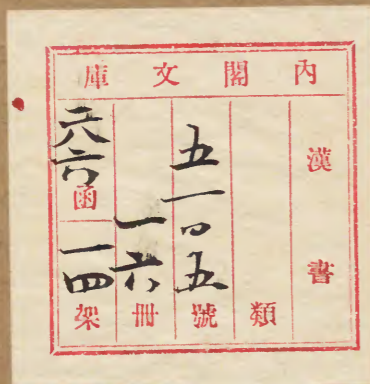 內閣文庫
漢書
類
五一〇五號
一六冊
二六六函
一四架